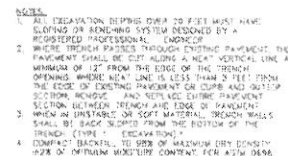 NOTES:
1. ALL EXCAVATION DEPTHS OVER 20 FEET MUST HAVE
SLOPING OR BENCHING SYSTEM DESIGNED BY A
REGISTERED PROFESSIONAL ENGINEER
2. WHERE TRENCH PASSES THROUGH EXISTING PAVEMENT, THE
PAVEMENT SHALL BE CUT ALONG A NEAT VERTICAL LINE A
MINIMUM OF 12" FROM THE EDGE OF THE TRENCH
OPENING. WHERE NEAT LINE IS LESS THAN 3 FEET FROM
THE EDGE OF EXISTING PAVEMENT OR CURB AND GUTTER
SECTION, REMOVE AND REPLACE ENTIRE PAVEMENT
SECTION BETWEEN TRENCH AND EDGE OF PAVEMENT
3. WHEN IN UNSTABLE OR SOFT MATERIAL, TRENCH WALLS
SHALL BE BACK SLOPED FROM THE BOTTOM OF THE
TRENCH (TYPE EXCAVATION)
4. COMPACT BACKFILL TO 98% OF MAXIMUM DRY DENSITY
±2% OF OPTIMUM MOISTURE CONTENT PER ASTM D698